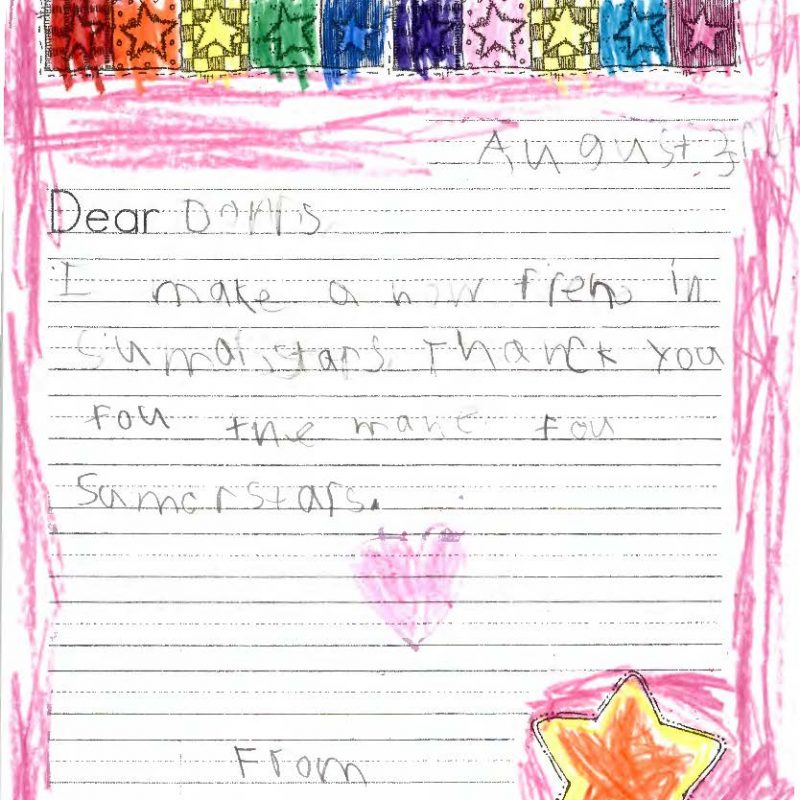 August 3rd
Dear Dorris
I make a now frend in
Sumarstars. Thanck you
fou the mane fou
Sumerstars.
From